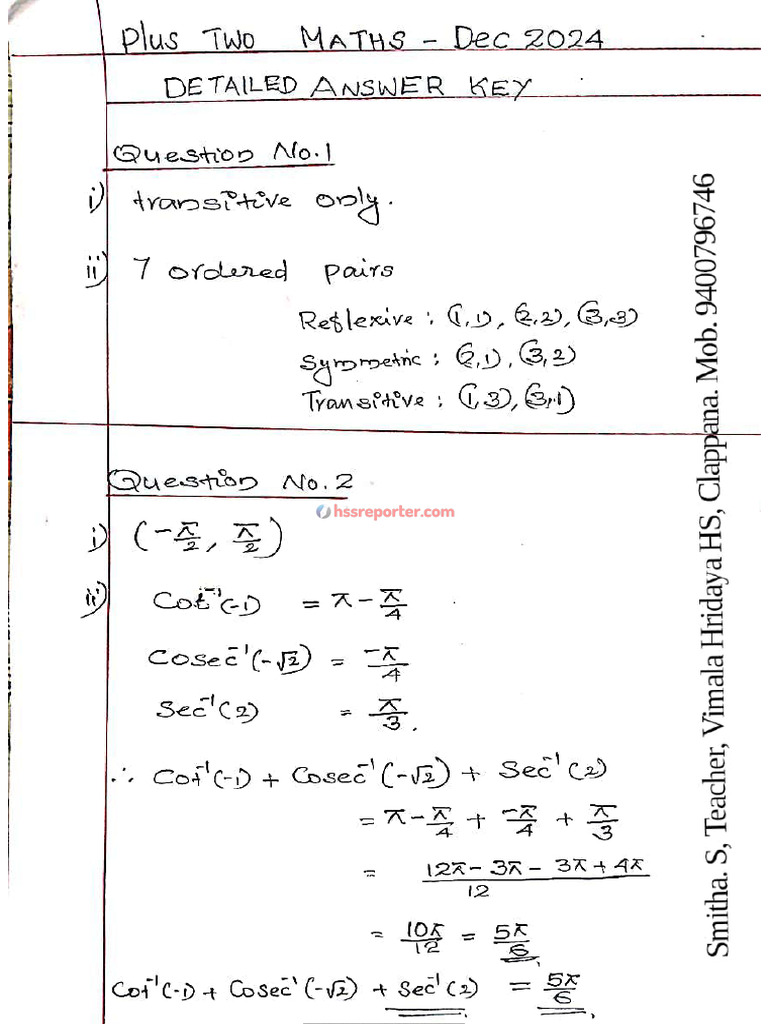 Plus Two MATHS - Dec 2024
DETAILED ANSWER KEY
Question No.1
i) transitive only.
ii) 7 ordered pairs
Reflexive : (1,1), (2,2), (3,3)
Symmetric : (2,1), (3,2)
Transitive : (1,3), (3,1)
Question No.2
hssreporter.com
i) (-π/2, π/2)
ii) Cot⁻¹(-1) = π - π/4
Cosec⁻¹(-√2) = -π/4
Sec⁻¹(2) = π/3.
∴ Cot⁻¹(-1) + Cosec⁻¹(-√2) + Sec⁻¹(2)
= π - π/4 + -π/4 + π/3
= 12π - 3π - 3π + 4π/12
= 10π/12 = 5π/6
Cot⁻¹(-1) + Cosec⁻¹(-√2) + Sec⁻¹(2) = 5π/6.
Smitha. S, Teacher, Vimala Hridaya HS, Clappana. Mob. 9400796746